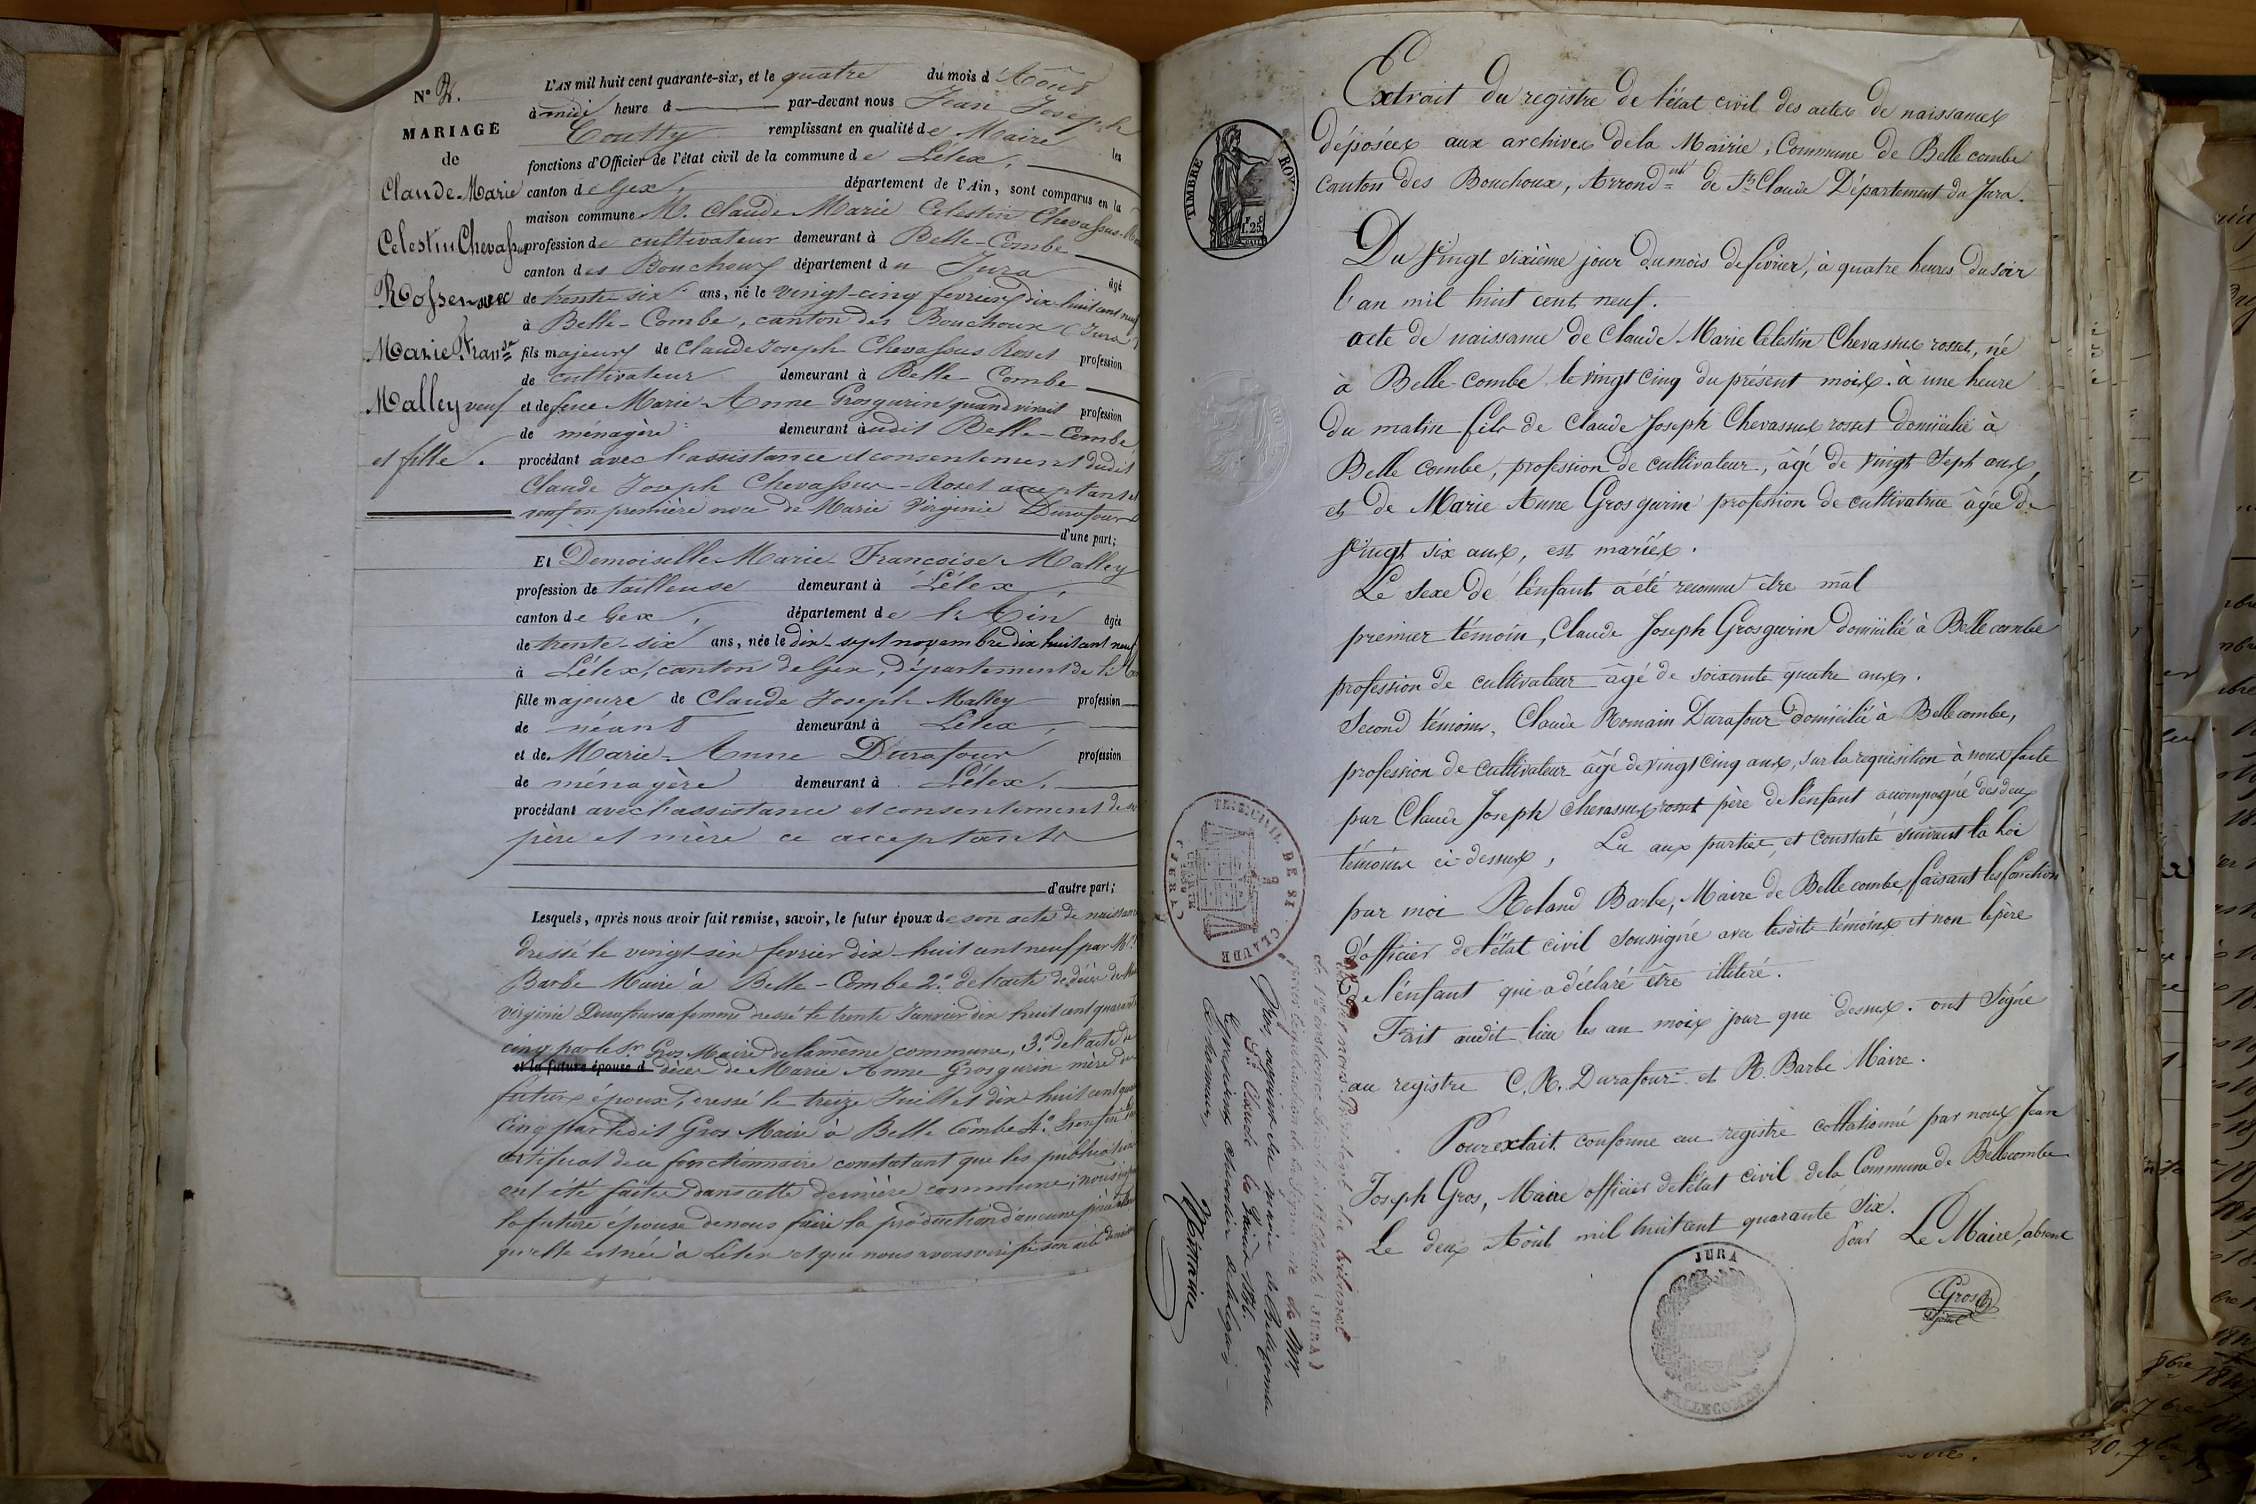 N° 2.
MARIAGE
de
Claude-Marie
Celestin Chevassus
Rosset avec
Marie Franse
Malley veuf
et fille.
L'AN mil huit cent quarante-six, et le quatre du mois d'Août
à midi heure d par-devant nous Jean Joseph
Coutty remplissant en qualité de Maire les
fonctions d'Officier de l'état civil de la commune de Lélex,
canton de Gex, département de l'Ain, sont comparus en la
maison commune M. Claude Marie Celestin Chevassus-
profession de cultivateur demeurant à Belle-Combe
canton des Bouchoux département du Jura âgé
de trente-six ans, né le vingt-cinq fevrier dix-huit cent neuf
à Belle-Combe, canton des Bouchoux (Jura)
fils majeur de Claude Joseph Chevassus Rosset profession
de cultivateur demeurant à Belle-Combe
et de feue Marie Anne Grosgurin quand vivait profession
de ménagère demeurant audit Belle-Combe
procédant avec l'assistance et consentement dudit
Claude Joseph Chevassus-Roset acceptant et
veuf en première noce de Marie Virginie Durafour
d'une part;
Et Demoiselle Marie Françoise Malley
profession de tailleuse demeurant à Lélex,
canton de Gex, département de l'Ain âgée
de trente-six ans, née le dix-sept novembre dix huit cent neuf
à Lélex, canton de Gex, département de l'Ain
fille majeure de Claude Joseph Malley profession
de néant demeurant à Lélex,
et de Marie-Anne Durafour profession
de ménagère demeurant à Lélex.
procédant avec l'assistance et consentement de ses
père et mère ce acceptants
d'autre part;
Lesquels, après nous avoir fait remise, savoir, le futur époux de son acte de naissance
dressé le vingt-six fevrier dix-huit cent neuf par Mr
Barbe Maire à Belle-Combe 2.° de l'acte de décès de
virginie Durafour sa femme dressé le trente Janvier dix huit cent quarante
cinq par le Sr Gros Maire de la même commune, 3.° de l'acte de
et la future épouse d décès de Marie Anne Grosgurin mère du
futur époux, dressé le treize Juillet dix huit cent
cinq par ledit Gros Maire à Belle Combe 4.° Enfin
certificat de ce fonctionnaire constatant que les publications
ont été faites dans cette dernière commune;
la future épouse de nous faire la production d'aucune pièce
qu'elle est née à Lélex et que nous avons vérifié son acte de
TIMBRE ROY
1.25
Extrait du registre de l'état civil des actes de naissances
déposées aux archives de la Mairie, Commune de Belle combe
canton des Bouchoux, Arrondnt de St Claude Département du Jura.
Du Vingt sixième jour du mois de fivrier, à quatre heures du soir
l'an mil huit cent neuf.
acte de naissance de Claude Marie Celestin Chevassus rosset, né
à Belle-combe le vingt cinq du présent mois. à une heure
du matin fils de Claude Joseph Chevassus rosset domicilié à
Belle combe, profession de cultivateur, âgé de vingt Sept ans,
et de Marie Anne Grosgurin profession de cultivatrice âgée de
Vingt six ans, est mariés.
Le sexe de l'enfant a été reconnu être mâl
premier témoin, Claude Joseph Grosgurin domicilié à Belle combe
profession de cultivateur âgé de soixante quatre ans.
Second témoins, Claude Romain Durafour domicilié à Bellecombe,
profession de cultivateur âgé de vingt cinq ans, sur la requisition à nous faite
par Claude Joseph chevassus rosset père de l'enfant accompagné des deux
témoins ci-dessus, Lu aux parties, et constaté suivant la Loi
par moi Roland Barbe, Maire de Belle combe, faisant les fonction
d'officier de l'état civil soussigné avec lesdits témoins et non le père
de l'enfant qui a déclaré être illiteré.
Fait audit lieu les an mois jour que dessus. ont Signé
au registre C. R. Durafour et R. Barbe Maire.
Pour extrait conforme au registre collationné par nous Jean
Joseph Gros, Maire officier de l'état civil de la Commune de Bellecombe
Le deux Août mil huit cent quarante six.
Pour Le Maire, absent
Gros
adjoint
JURA
BELLECOMBE
TRIB. CIVIL DE ST. CLAUDE
(JURA)
Vu par nous Président du tribunal
de 1re instance séant à St Claude (JURA)
pour légalisation de la signature de Mr
Gros, adjoint au maire de Bellecombe
St Claude le trois Août 1846.